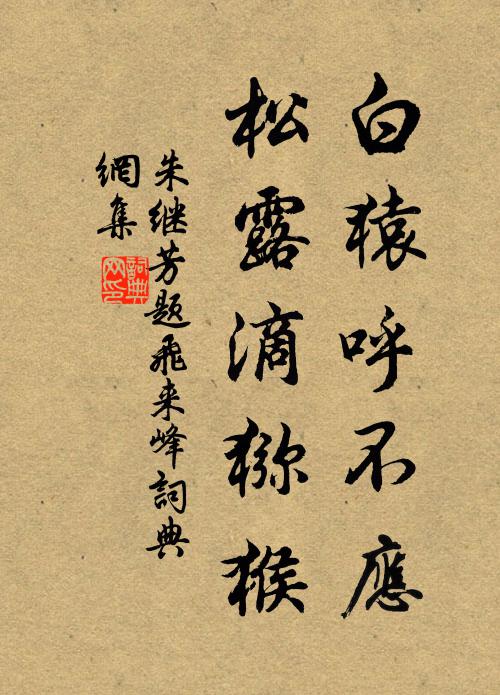 白猿呼不應
松露滴猕猴
朱继芳题飛来峰詞典
網集
詞典
网印